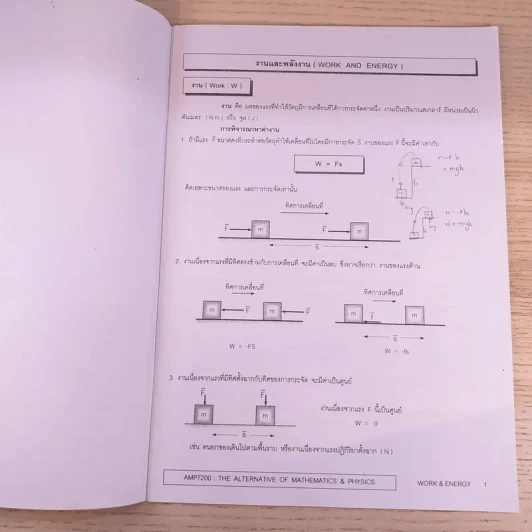 งานและพลังงาน ( WORK AND ENERGY )
งาน ( Work : W )
งาน คือ ผลของแรงที่ทำให้วัตถุมีการเคลื่อนที่ได้การกระจัดค่าหนึ่ง งานเป็นปริมาณสเกลาร์ มีหน่วยเป็นนิว
ตันเมตร ( N.m ) หรือ จูล ( J )
การพิจารณาหาค่างาน
1. ถ้ามีแรง F ขนาดคงที่กระทำต่อวัตถุทำให้เคลื่อนที่ไปโดยมีการกระจัด S งานของแรง F นี้จะมีค่าเท่ากับ
W = Fs
= mgh
คิดเฉพาะขนาดของแรง และการกระจัดเท่านั้น
ทิศการเคลื่อนที่
F m F m
S
2. งานเนื่องจากแรงที่มีทิศตรงข้ามกับการเคลื่อนที่ จะมีค่าเป็นลบ ซึ่งอาจเรียกว่า งานของแรงต้าน
ทิศการเคลื่อนที่ ทิศการเคลื่อนที่
m F m F m f m
S
W = -FS W = -fs
3. งานเนื่องจากแรงที่มีทิศตั้งฉากกับทิศของการกระจัด จะมีค่าเป็นศูนย์
F F
m m
งานเนื่องจากแรง F นี้เป็นศูนย์
W = 0
S
เช่น คนยกของเดินไปตามพื้นราบ หรืองานเนื่องจากแรงปฏิกิริยาตั้งฉาก ( N )
AMP7200 : THE ALTERNATIVE OF MATHEMATICS & PHYSICS WORK & ENERGY 1